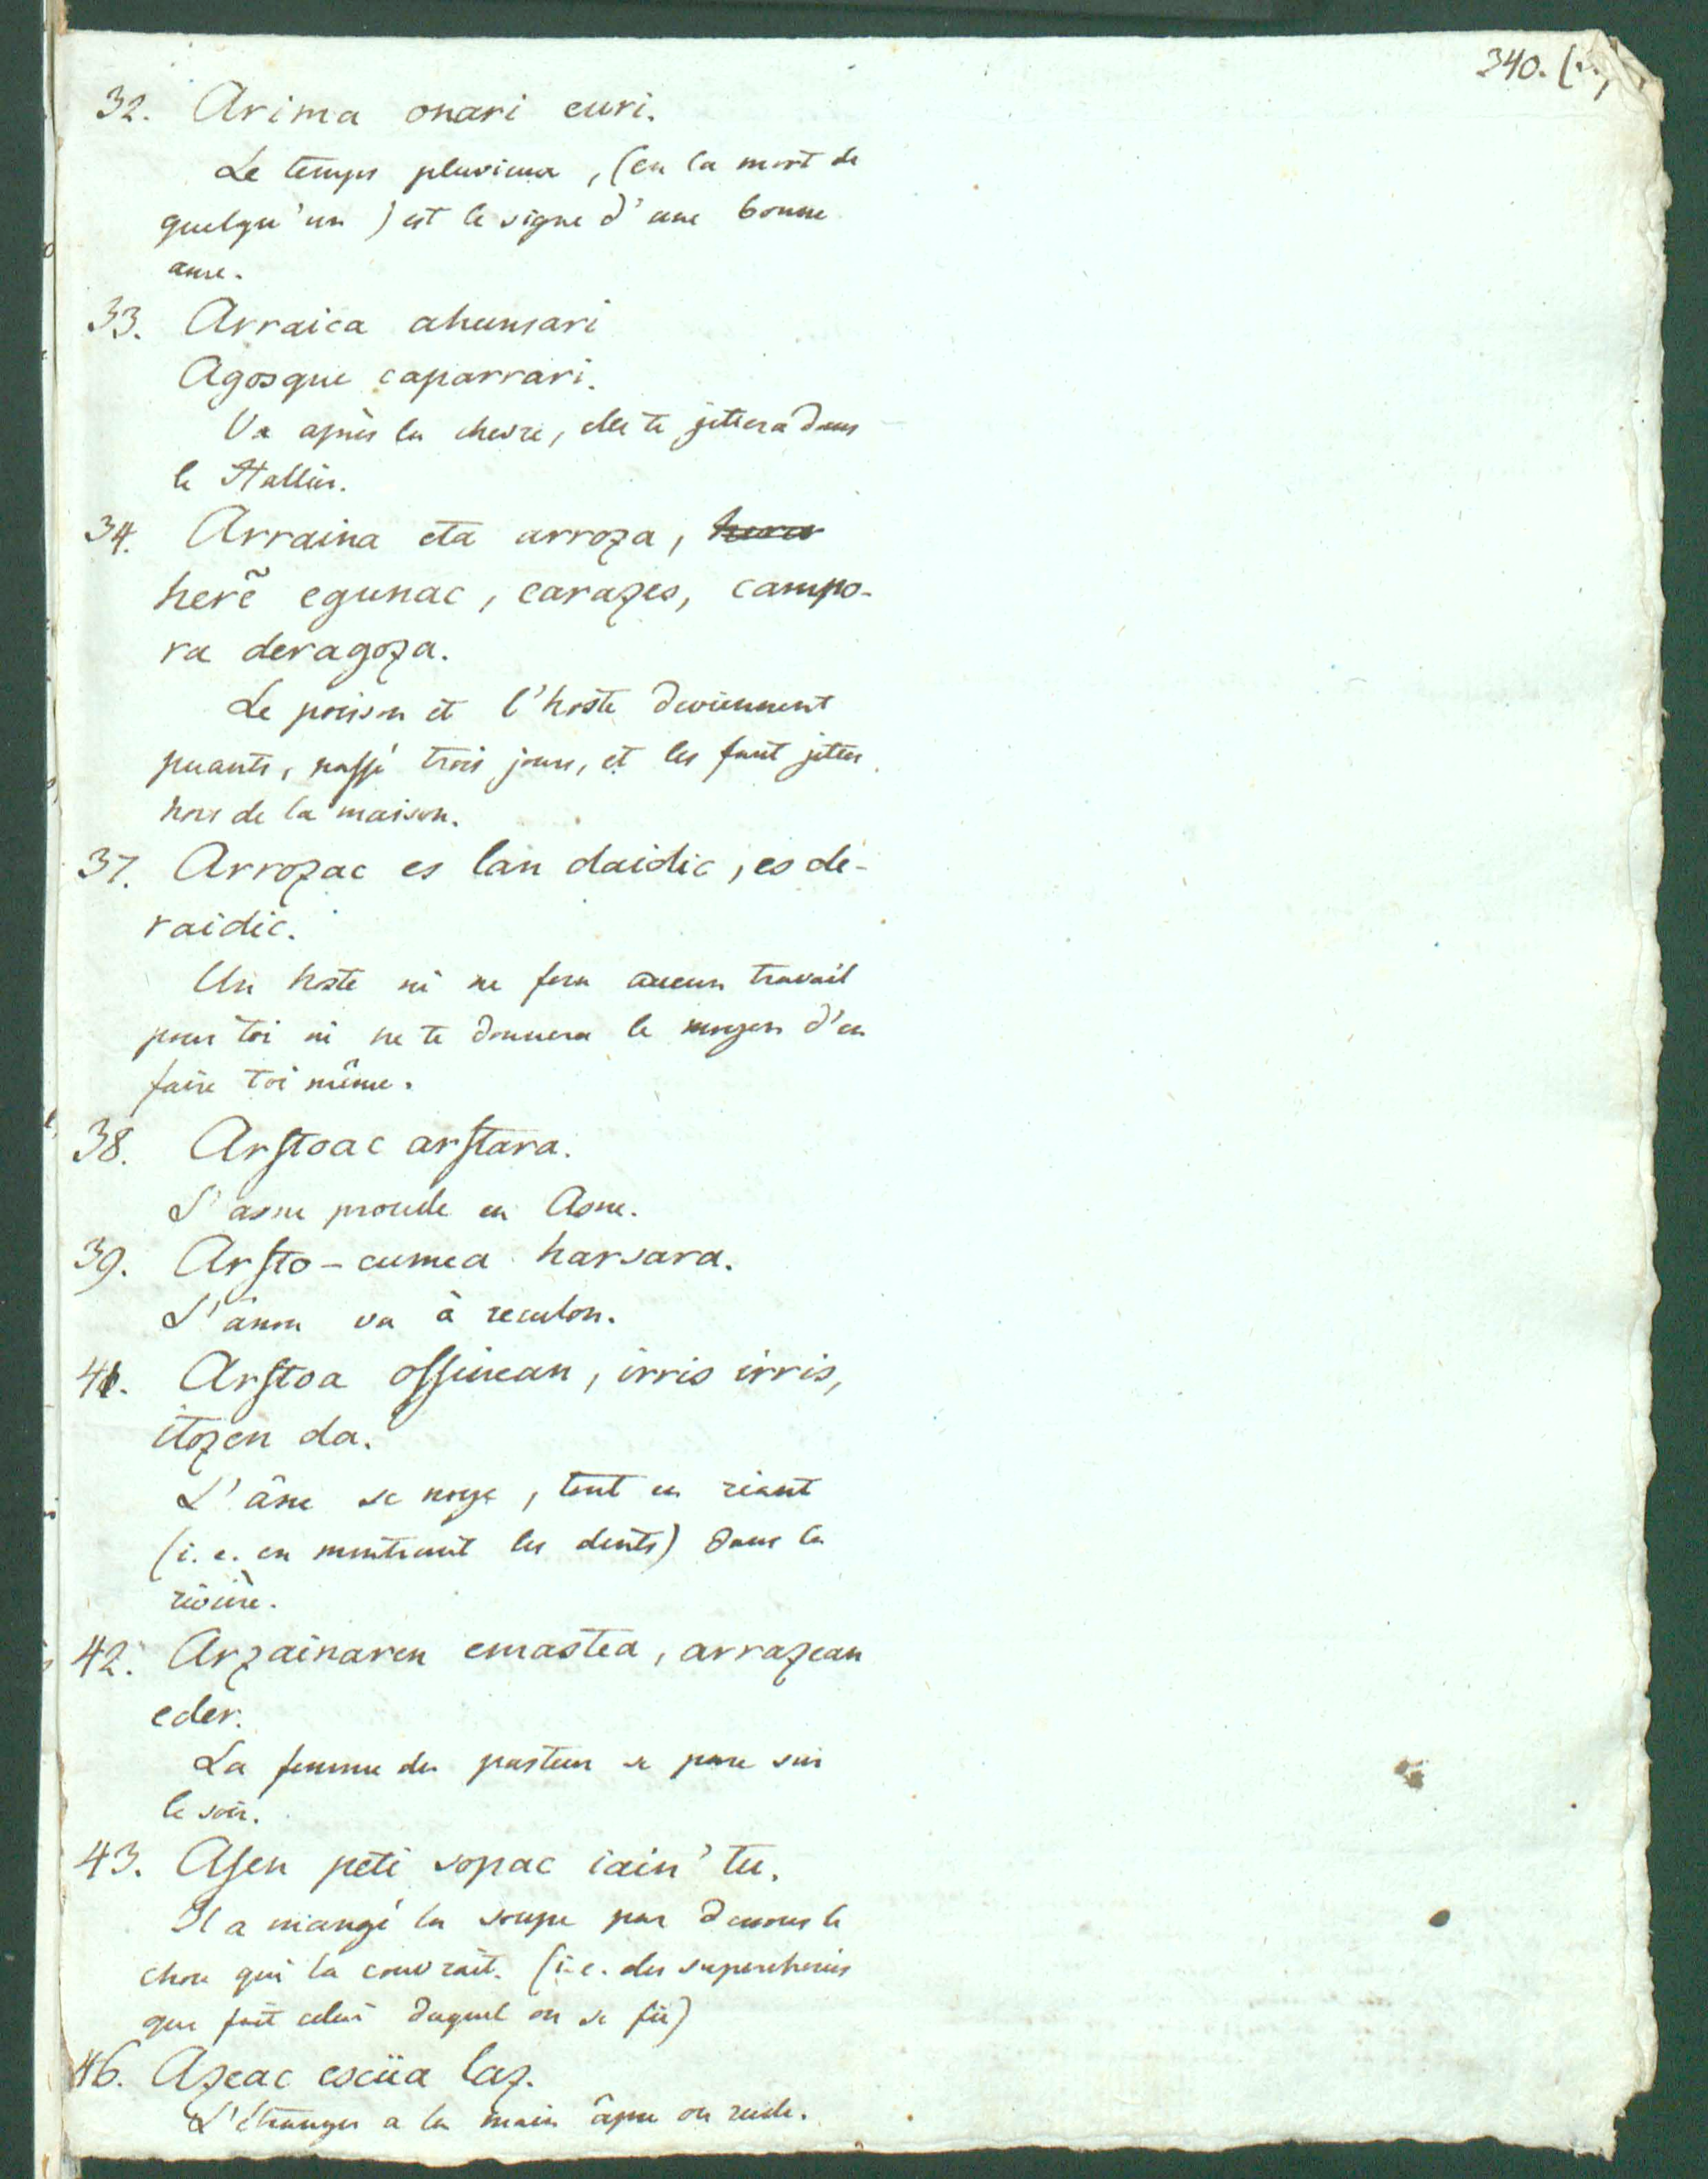 340.
32. Arima onari euri.
Le temps pluvieux, (en la mort de
quelqu'un) est le signe d'une bonne
ame.
33. Arraica ahunsari
Agosque caparrari.
Va après la chevre, elle te jettera dans
le Hallier.
34. Arraina eta arroza,
herẽ egunac, carazes, campo-
ra deragoza.
Le poisson et l'hoste deviennent
puants, passé trois jours, et les faut jetter
hors de la maison.
37. Arrozac es lan daidic, es de-
raidic.
Un hoste ni ne fera aucun travail
pour toi ni ne te donnera le moyen d'en
faire toi même.
38. Arstoac arstara.
L'asne procede en Asne.
39. Arsto-cumea harsara.
L'ânon va à reculon.
41. Arstoa ossinean, irris irris,
itozen da.
L'âne se noye, tout en riant
(i.e. en montrant les dents) dans la
rivière.
42. Arzainaren emastea, arrazean
eder.
La femme du pasteur se pare sur
le soir.
43. Asen peti sopac iain'tu.
Il a mangé la soupe par dessous le
chou qui la couvrait. (i.e. des supercheries
que fait celui duquel on se fie)
46. Azeac escüa laz.
L'étranger a la main âpre ou rude.